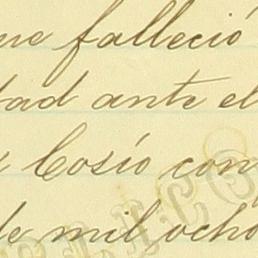 ue falleció
dad ante el
Cosío con
de mil ocho